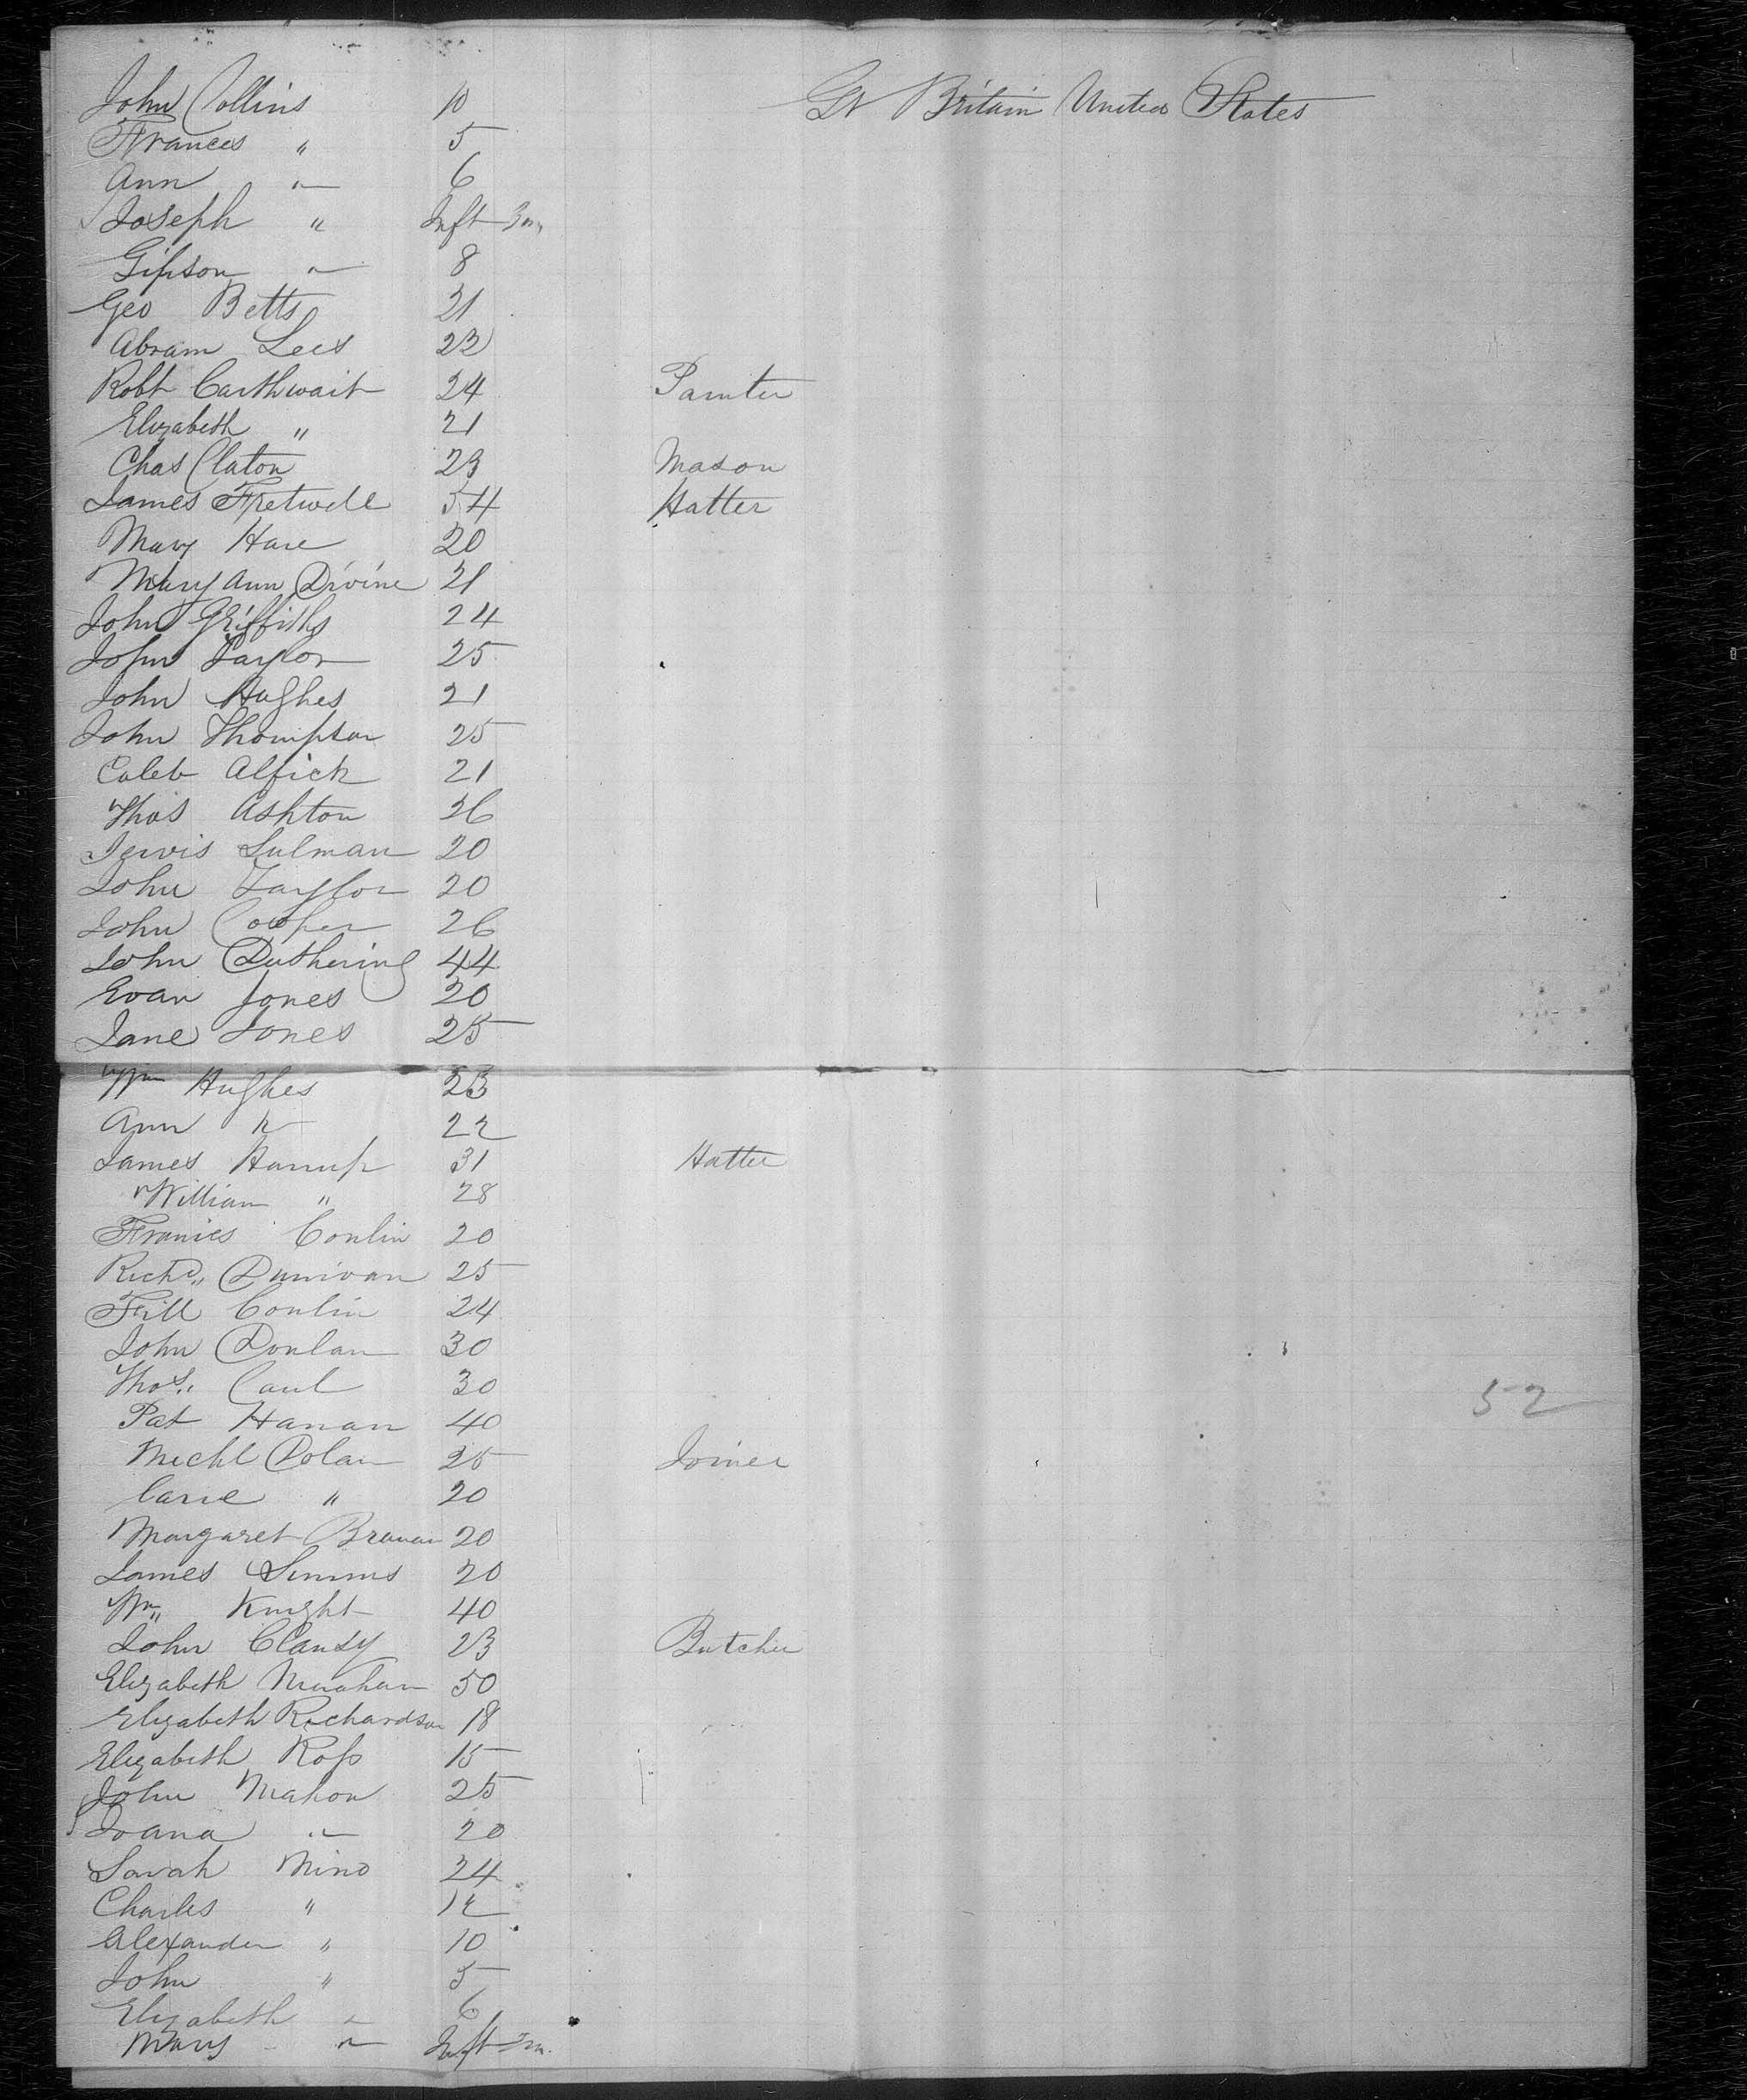 John Collins 10 Gt Britain United States
Frances " 5
Ann " 6
Joseph " Inft 3m
Gipson " 8
Geo Betts 21
Abram Lees 22
Robt Carthwait 24 Painter
Elizabeth " 21
Chas Claton 23 Mason
James Fretwell 54 Hatter
Mary Hare 20
Mary Ann Divine 21
John Griffiths 24
John Taylor 25
John Hughes 21
John Thompson 25
Caleb Alfick 21
Thos Ashton 26
Jervis Sulman 20
John Taylor 20
John Cooper 26
John Duthering 44
Evan Jones 20
Jane Jones 25
Wm Hughes 23
Ann " 22
James Harrup 31 Hatter
William " 28
Francies Conlin 20
Richd Dunivan 25
Fill Conlin 24
John Donlan 30
Thos Caul 30
52
Pat Hanan 40
Michl Dolan 25 Joiner
Carie " 20
Margaret Branan 20
James Simms 20
Wm Knight 40
John Clansy 23 Butcher
Elizabeth 50
Elizabeth Richardson 18
Elizabeth Ross 15
John Mahon 25
Joana " 20
Sarah Mino 24
Charles " 12
Alexander " 10
John " 5
Elizabeth " 6
Mary " Inft 2m